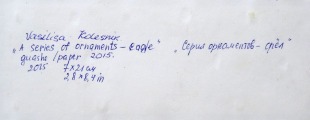 Vasilisa Kolesnik
"A series of ornaments - Eagle" "Серия орнаментов - орёл"
guashe / paper. 2015.
2015 7x21 см
2,8 x 8,4 in